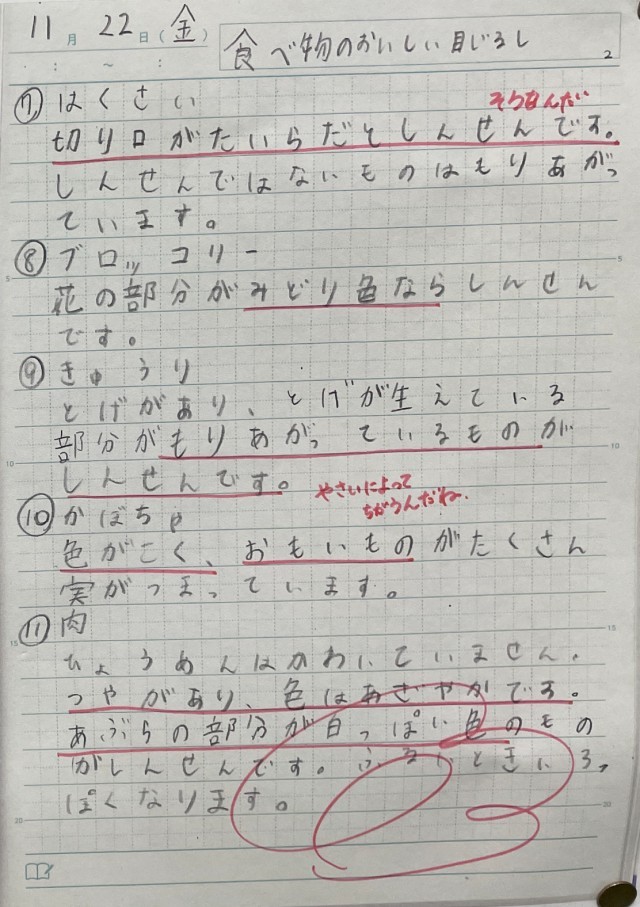 11月22日(金)
食べ物のおいしい目じるし
2
⑦はくさい
そうなんだ
切り口がたいらだとしんせんです。
しんせんではないものはもりあがっ
ています。
⑧ブロッコリー
花の部分がみどり色ならしんせん
です。
⑨きゅうり
とげがあり、とげが生えている
部分がもりあがっているものが
しんせんです。
やさいによって
ちがうんだね。
⑩かぼちゃ
色がこく、おもいものがたくさん
実がつまっています。
⑪肉
ひょうめんはかわいていません。
つやがあり、色はあざやかです。
あぶらの部分が白っぽい色のもの
がしんせんです。ふるいときいろっ
ぽくなります。
5
5
10
10
15
15
20
20